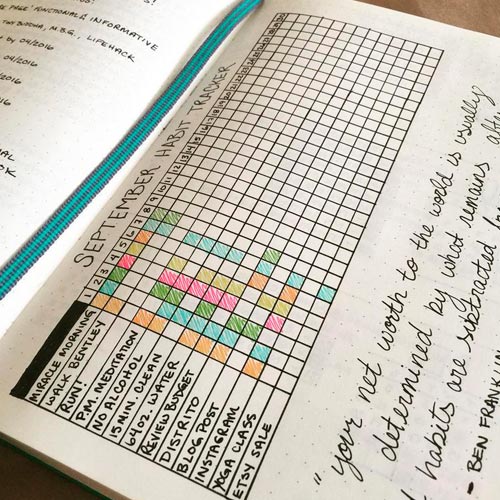 E PAGE! FUNCTIONAL & INFORMATIVE
TNT BUTCHA, M.B.G., LIFEHACK
BY 04/2016
04/2016
2016
SEPTEMBER HABIT TRACKER
1 2 3 4 5 6 7 8 9 10 11 12 13 14 15 16
MIRACLE MORNING
WALK BENTLEY
RUN!
P.M. MEDITATION
NO ALCOHOL
15 MIN. CLEAN
64 OZ. WATER
REVIEW BUDGET
DISTRITO
BLOG POST
INSTAGRAM
YOGA CLASS
ETSY SALE
"your net worth to the world is usually
determined by what remains after
habits are subtracted
- BEN FRANKLIN